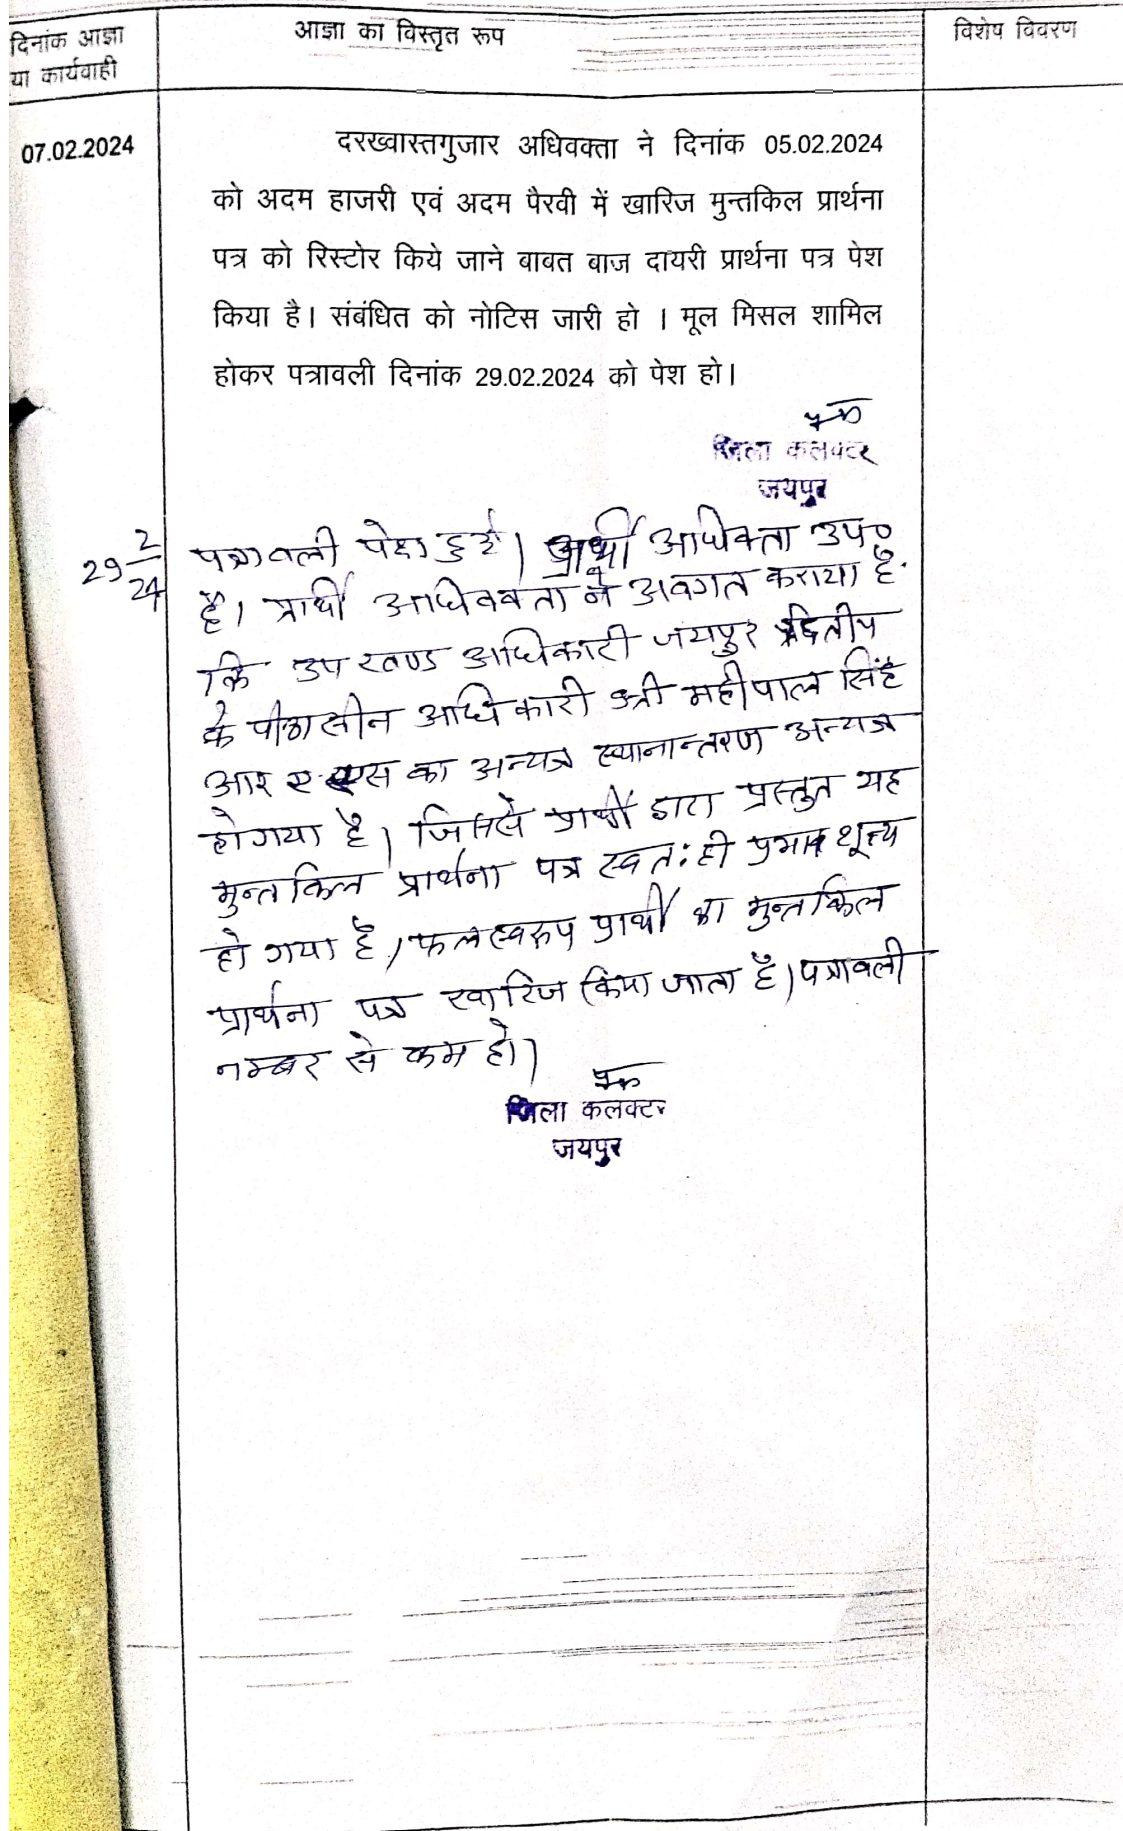 दिनांक आज्ञा
या कार्यवाही
आज्ञा का विस्तृत रूप
विशेष विवरण
07.02.2024
दरख्वास्तगुजार अधिवक्ता ने दिनांक 05.02.2024
को अदम हाजरी एवं अदम पैरवी में खारिज मुन्तकिल प्रार्थना
पत्र को रिस्टोर किये जाने बावत बाज दायरी प्रार्थना पत्र पेश
किया है। संबंधित को नोटिस जारी हो । मूल मिसल शामिल
होकर पत्रावली दिनांक 29.02.2024 को पेश हो।
जिला कलक्टर
जयपुर
29 2/24
पत्रावली पेश हुई। प्रार्थी अधिवक्ता उप०
है। प्रार्थी अधिवक्ता ने अवगत कराया है.
कि उप खण्ड अधिकारी जयपुर द्वितीय
के पीठासीन अधिकारी श्री महीपाल सिंह
आर ए एस का अन्यत्र स्थानान्तरण अन्यत्र
हो गया है। जिससे प्रार्थी द्वारा प्रस्तुत यह
मुन्तकिल प्रार्थना पत्र स्वतः ही प्रभाव शून्य
हो गया है, फलस्वरुप प्रार्थी का मुन्तकिल
प्रार्थना पत्र खारिज किया जाता है। पत्रावली
नम्बर से कम हो।
जिला कलक्टर
जयपुर